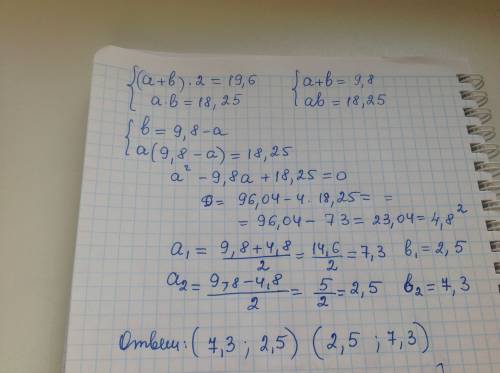 {(a+b)·2=19,6   {a+b=9,8
a·b=18,25   ab=18,25
{b=9,8-a
a(9,8-a)=18,25
a²-9,8a+18,25=0
D=96,04-4·18,25= =
=96,04-73=23,04=4,8²
a₁=(9,8+4,8)/2=14,6/2=7,3   b₁=2,5
a₂=(9,8-4,8)/2=5/2=2,5   b₂=7,3
Ответ: (7,3; 2,5) (2,5; 7,3)